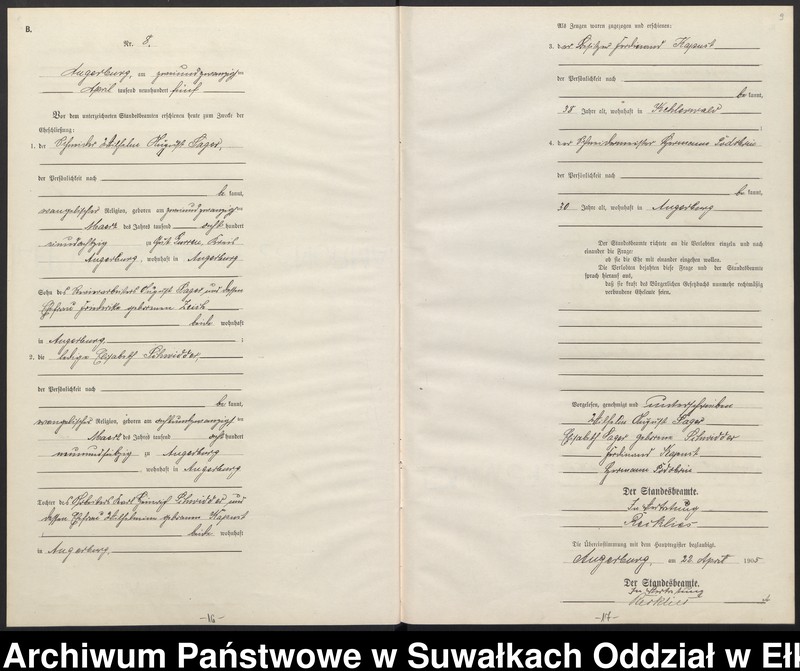 B.
Nr. 8.
Angerburg, am zweiundzwanzigsten
April tausend neunhundert fünf
Vor dem unterzeichneten Standesbeamten erschienen heute zum Zwecke der
Eheschließung:
1. der Wilhelm August Sager,
der Persönlichkeit nach
be kannt,
evangelischer Religion, geboren am zweiundzwanzigsten
Maerz des Jahres tausend acht hundert
zu Gut Kreis
Angerburg, wohnhaft in Angerburg
Sohn des August Sager und dessen
Ehefrau Friederike geborenen
beide wohnhaft
in Angerburg ;
2. die ledige Elisabeth Schwidder,
der Persönlichkeit nach
be kannt,
evangelischer Religion, geboren am achtundzwanzigsten
Maerz des Jahres tausend acht hundert
neunundsiebzig zu Angerburg
, wohnhaft in Angerburg
Tochter des Arbeiters Heinrich Schwidder und
dessen Ehefrau Wilhelmine geborenen Kapust
beide wohnhaft
in Angerburg.
-16-
Als Zeugen waren zugezogen und erschienen:
3. der Besitzer Ferdinand Kapust
der Persönlichkeit nach
be kannt,
38 Jahre alt, wohnhaft in Kehlerwald
;
4. der Hermann
der Persönlichkeit nach
be kannt,
30 Jahre alt, wohnhaft in Angerburg
Der Standesbeamte richtete an die Verlobten einzeln und nach
einander die Frage:
ob sie die Ehe mit einander eingehen wollen.
Die Verlobten bejahten diese Frage und der Standesbeamte
sprach hierauf aus,
daß sie kraft des Bürgerlichen Gesetzbuchs nunmehr rechtmäßig
verbundene Eheleute seien.
Vorgelesen, genehmigt und unterschrieben
Wilhelm August Sager
Elisabeth Sager geborene Schwidder
Ferdinand Kapust
Hermann
Der Standesbeamte.
In Vertretung
Die Übereinstimmung mit dem Hauptregister beglaubigt.
Angerburg, am 22 April 1905
Der Standesbeamte.
In Vertretung
-17-
Archiwum Państwowe w Suwałkach Oddział w Eł